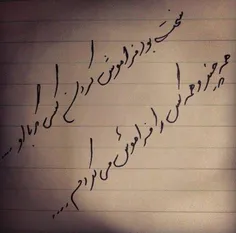 سخت بود فراموش کردن کسی که با او ...
همه چیز و همه کس را فراموش می کردم ....